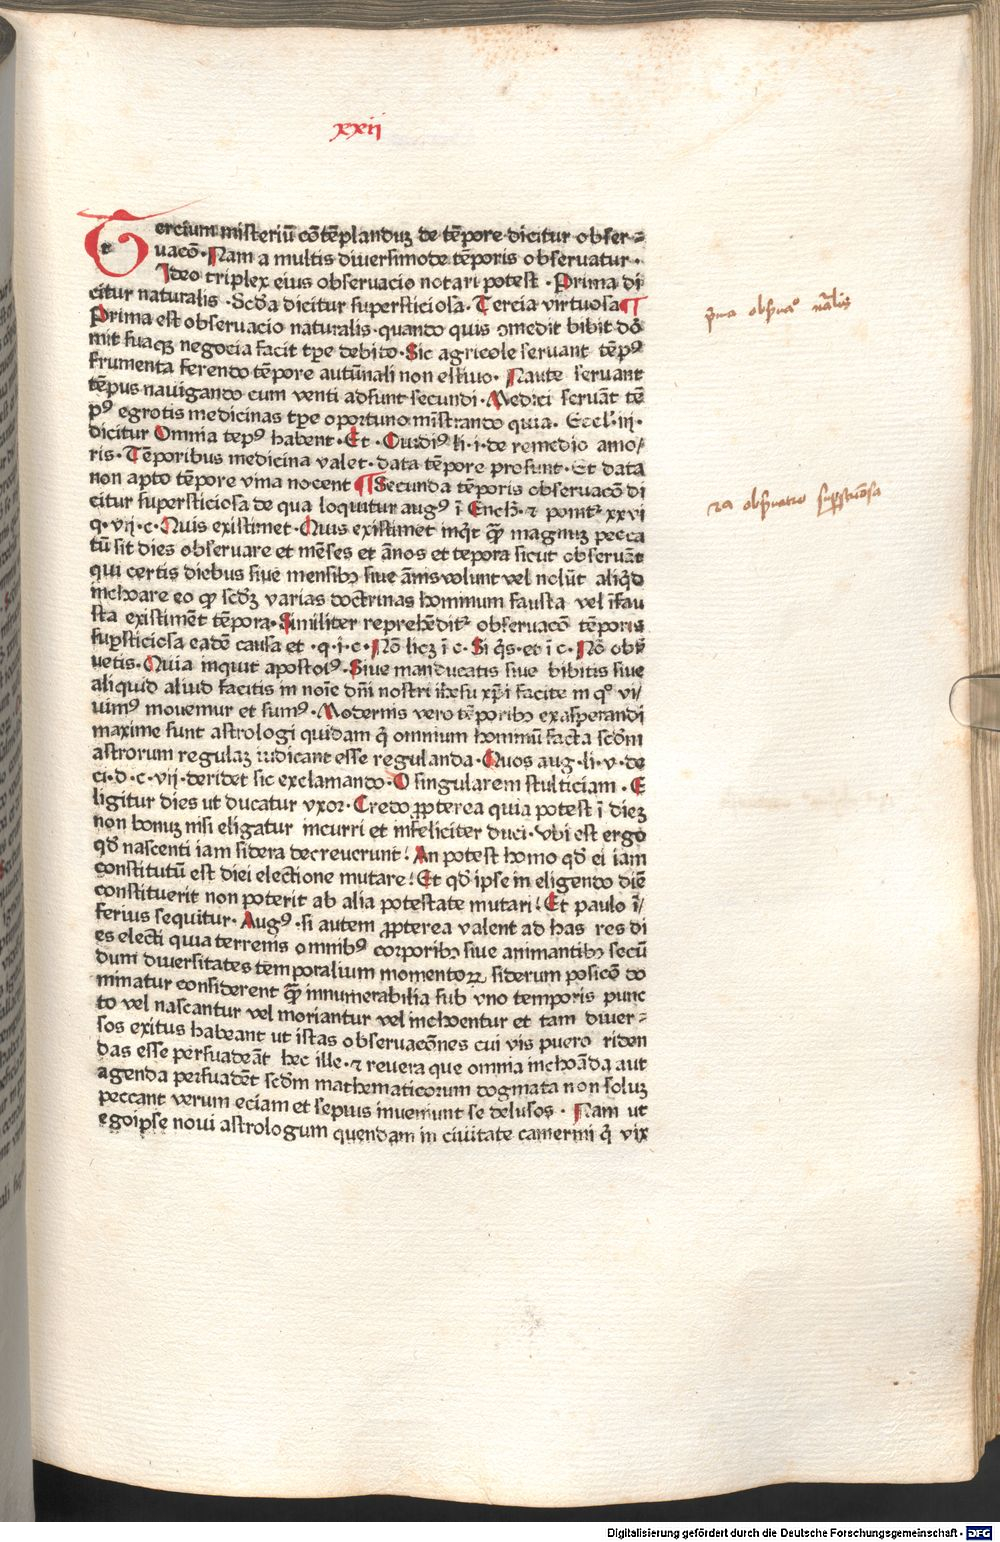 xxii
Tercium misteriū cōtēplanduꝫ de tēpore dicitur obser⸗
uacō · Nam a multis diuersimode tēporis obseruatur ·
Ideo triplex eius obseruacio notari potest · Prima di
citur naturalis · Scd̄a dicitur supersticiosa · Tercia virtuosa ¶
Prima est obseruacio naturalis · quando quis ꝯmedit bibit dor̄
mit suaqꝫ negocia facit tp̄e debito · Sic agricole seruant tēpꝰ
frumenta serendo tēpore autūnali non estiuo · Naute seruant
tēpus nauigando cum venti adsunt secundi · Medici seruāt tē
pꝰ egrotis medicinas tp̄e oportuno mīstrando quia · Eccl̄ · iij ·
dicitur Omnia tēpꝰ habent · Et · Ouidiꝰ li · i · de remedio amo/
ris · Tēporibus medicina valet · data tēpore prosunt · Et data
non apto tēpore vina nocent ¶ Secunda tēporis obseruacō di
citur supersticiosa de qua loquitur augꝰ ī Ench̄ · ⁊ ponit᷑ xxvi
q · vij · c · Quis existimet · Quis existimet inq̇t qꝫ̄ magnuꝫ pecca
tū sit dies obseruare et mēses et ānos et tēpora sicut obseruāt
qui certis diebus siue mensibꝫ siue ānis volunt vel nolūt aliq̇d
inchoare eo ꝙ scd̄ꝫ varias doctrinas hominum fausta vel īfau
sta existimēt tēpora · Similiter reprehēdit᷑ obseruacō tēporis
suꝑsticiosa eadē causa et · q · i · c · Nō licꝫ ī c · Si q̇s · et ī c · Nō obẜ
uetis · Quia inquit apostolꝰ · Siue manducatis siue bibitis siue
aliquid aliud facitis in noīe dn̄i nostri ihesu xp̄i facite in qͦ vi/
uimꝰ mouemur et sumꝰ · Modernis vero tēporibꝫ exasperandi
maxime sunt astrologi quidam q̇ omnium hominū facta scd̄m
astrorum regulaꝫ iudicant esse regulanda · Quos aug · li · v · de
ci · d · c · vij · deridet sic exclamando · O singularem stulticiam · E
ligitur dies ut ducatur vxor · Credo ꝓpterea quia potest ī dieꝫ
non bonuꝫ nisi eligatur incurri et infeliciter duci · Vbi est ergo
qd̄ nascenti iam sidera decreuerunt! An potest homo qd̄ ei iam
constitutū est diei electione mutare! Et qd̄ ipse in eligendo diē
constituerit non poterit ab alia potestate mutari! Et paulo ī/
ferius sequitur · Augꝰ · si autem ꝓpterea valent ad has res di
es electi quia terrenis omnibꝰ corporibꝫ siue animantibꝫ secū
dum diuersitates temporalium momentoꝝ siderum posicō do
minatur considerent qꝫ̄ innumerabilia sub vno temporis punc
to vel nascantur vel moriantur vel inchoentur et tam diuer⸗
sos exitus habeant ut istas obseruacōnes cui vis puero riden
das esse persuadeāt hec ille · ⁊ reuera que omnia inchoāda aut
agenda persuadēt scd̄m mathematicorum dogmata non soluꝫ
peccant verum eciam et sepius inueniunt se delusos · Nam ut
egoipse noui astrologum quendam in ciuitate camerini q̇ vix
pͥma obẜuaͦ nālis
2a obẜuatio suꝑstitiosa
Digitalisierung gefördert durch die Deutsche Forschungsgemeinschaft · DFG